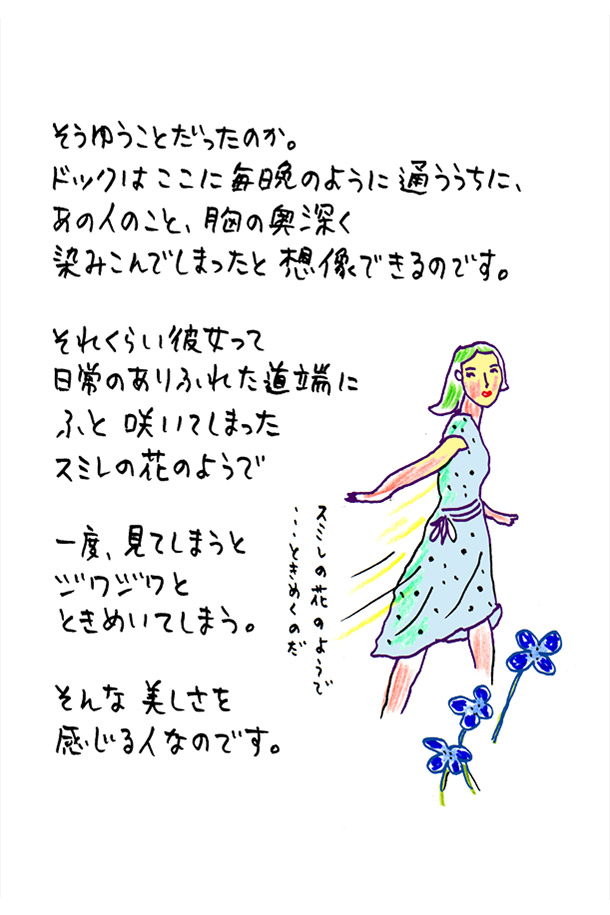 そうゆうことだったのか。
ドックはここに毎日晩のように通ううちに、
あの人のこと、胸の奥深く
染みこんでしまったと想像できるのです。
それくらい彼女って
日常のありふれた道端に
ふと咲いてしまった
スミレの花のようで
一度、見てしまうと
ジワジワと
ときめいてしまう。
そんな美しさを
感じる人なのです。
スミレの花のようで
…ときめくのだ